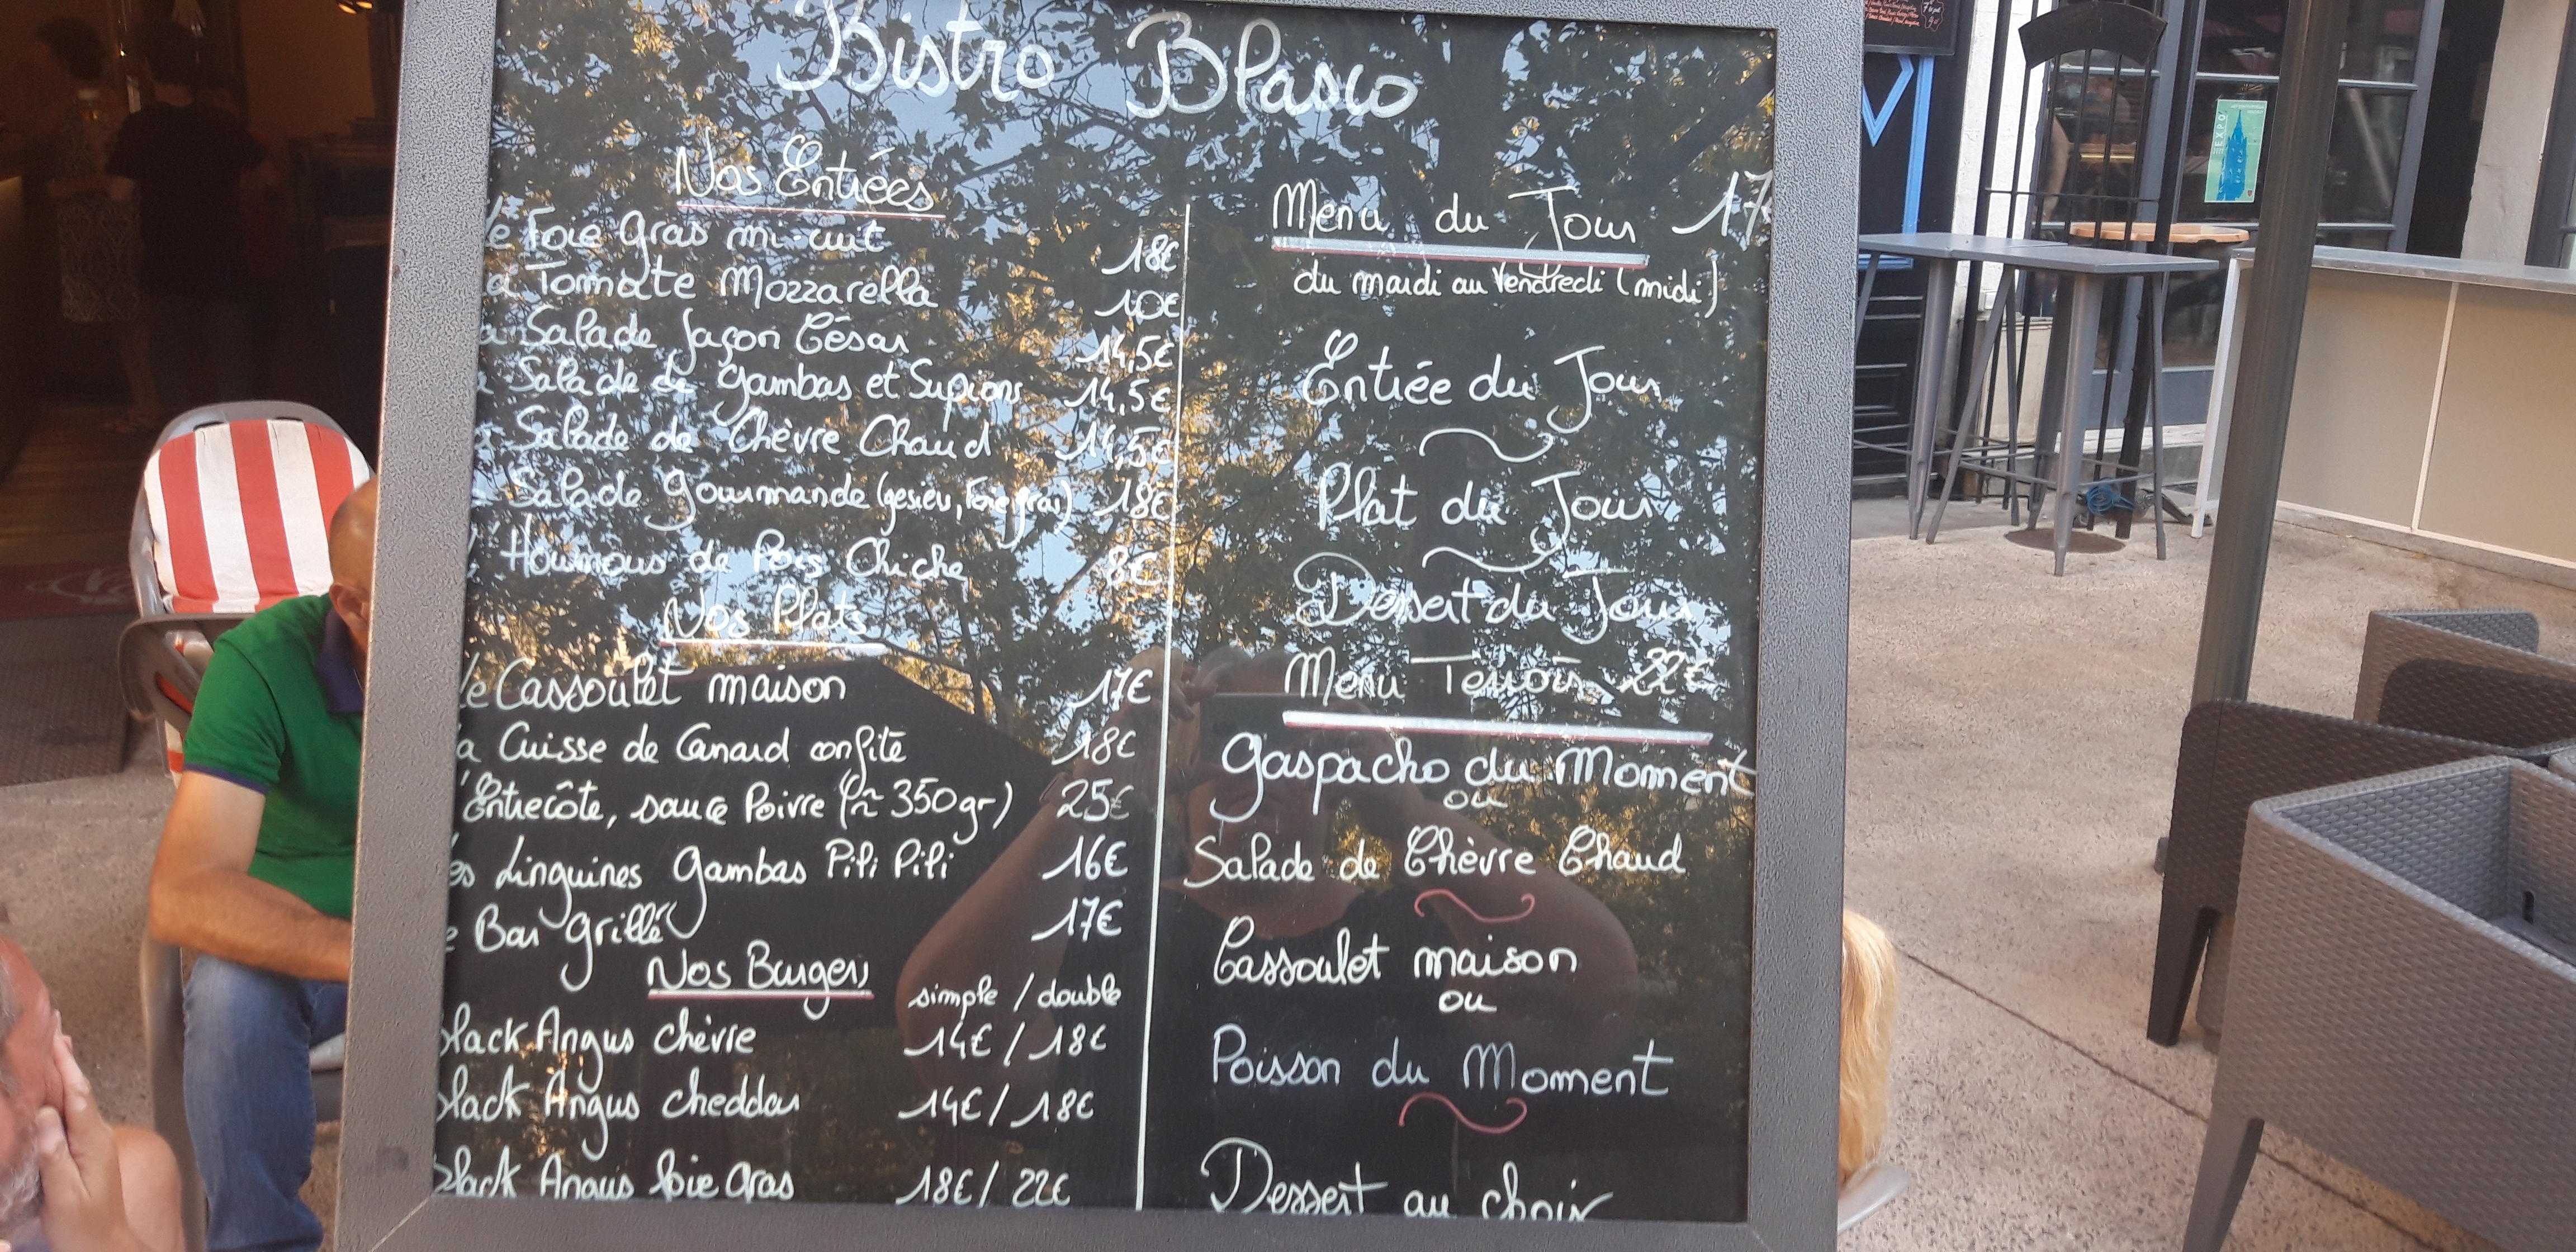 Bistro Blasco
Nos Entrées
Le Foie Gras mi-cuit 18€
La Tomate Mozzarella 10€
La Salade façon César 14,5€
Salade de gambas et Supions 14,5€
Salade de Chèvre Chaud 14,5€
Salade gourmande (gesier, Foie gras) 18€
L'Houmous de Pois Chiche 8€
Nos Plats
Le Cassoulet maison 17€
La Cuisse de Canard confite 18€
L'Entrecôte, sauce Poivre (~ 350gr) 25€
Les Linguines Gambas Pili Pili 16€
Le Bar grillé 17€
Nos Burgers simple / double
Black Angus chèvre 14€ / 18€
Black Angus cheddar 14€ / 18€
Black Angus foie gras 18€ / 22€
Menu du Jour 17€
du mardi au Vendredi (midi)
Entrée du Jour
Plat du Jour
Dessert du Jour
Menu Terroir 22€
Gaspacho du Moment
ou
Salade de Chèvre Chaud
Cassoulet maison
ou
Poisson du Moment
Dessert au choix
EXPO